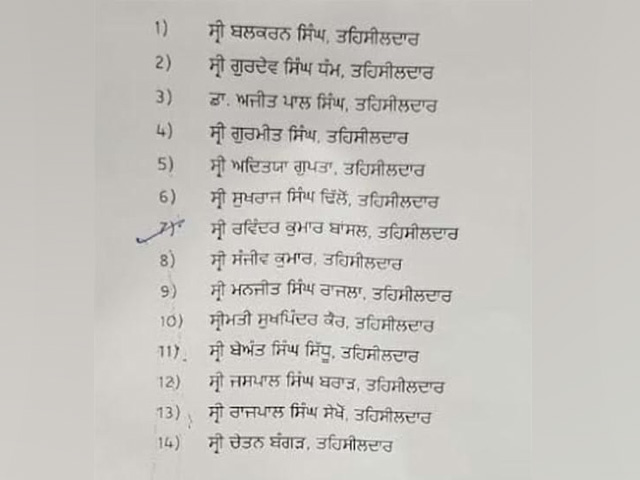 1) ਸ੍ਰੀ ਬਲਕਰਨ ਸਿੰਘ, ਤਹਿਸੀਲਦਾਰ
2) ਸ੍ਰੀ ਗੁਰਦੇਵ ਸਿੰਘ ਧੰਮ, ਤਹਿਸੀਲਦਾਰ
3) ਡਾ. ਅਜੀਤ ਪਾਲ ਸਿੰਘ, ਤਹਿਸੀਲਦਾਰ
4) ਸ੍ਰੀ ਗੁਰਮੀਤ ਸਿੰਘ, ਤਹਿਸੀਲਦਾਰ
5) ਸ੍ਰੀ ਅਦਿਤਯਾ ਗੁਪਤਾ, ਤਹਿਸੀਲਦਾਰ
6) ਸ੍ਰੀ ਸੁਖਰਾਜ ਸਿੰਘ ਢਿੱਲੋਂ, ਤਹਿਸੀਲਦਾਰ
7) ਸ੍ਰੀ ਰਵਿੰਦਰ ਕੁਮਾਰ ਬਾਂਸਲ, ਤਹਿਸੀਲਦਾਰ
8) ਸ੍ਰੀ ਸੰਜੀਵ ਕੁਮਾਰ, ਤਹਿਸੀਲਦਾਰ
9) ਸ੍ਰੀ ਮਨਜੀਤ ਸਿੰਘ ਰਾਜਲਾ, ਤਹਿਸੀਲਦਾਰ
10) ਸ੍ਰੀਮਤੀ ਸੁਖਪਿੰਦਰ ਕੌਰ, ਤਹਿਸੀਲਦਾਰ
11) ਸ੍ਰੀ ਬੇਅੰਤ ਸਿੰਘ ਸਿੱਧੂ, ਤਹਿਸੀਲਦਾਰ
12) ਸ੍ਰੀ ਜਸਪਾਲ ਸਿੰਘ ਬਰਾੜ, ਤਹਿਸੀਲਦਾਰ
13) ਸ੍ਰੀ ਰਾਜਪਾਲ ਸਿੰਘ ਸੇਖੋਂ, ਤਹਿਸੀਲਦਾਰ
14) ਸ੍ਰੀ ਚੇਤਨ ਬੰਗੜ, ਤਹਿਸੀਲਦਾਰ